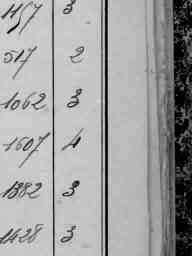 1157 3
517 2
1062 3
1607 4
1382 3
1428 3